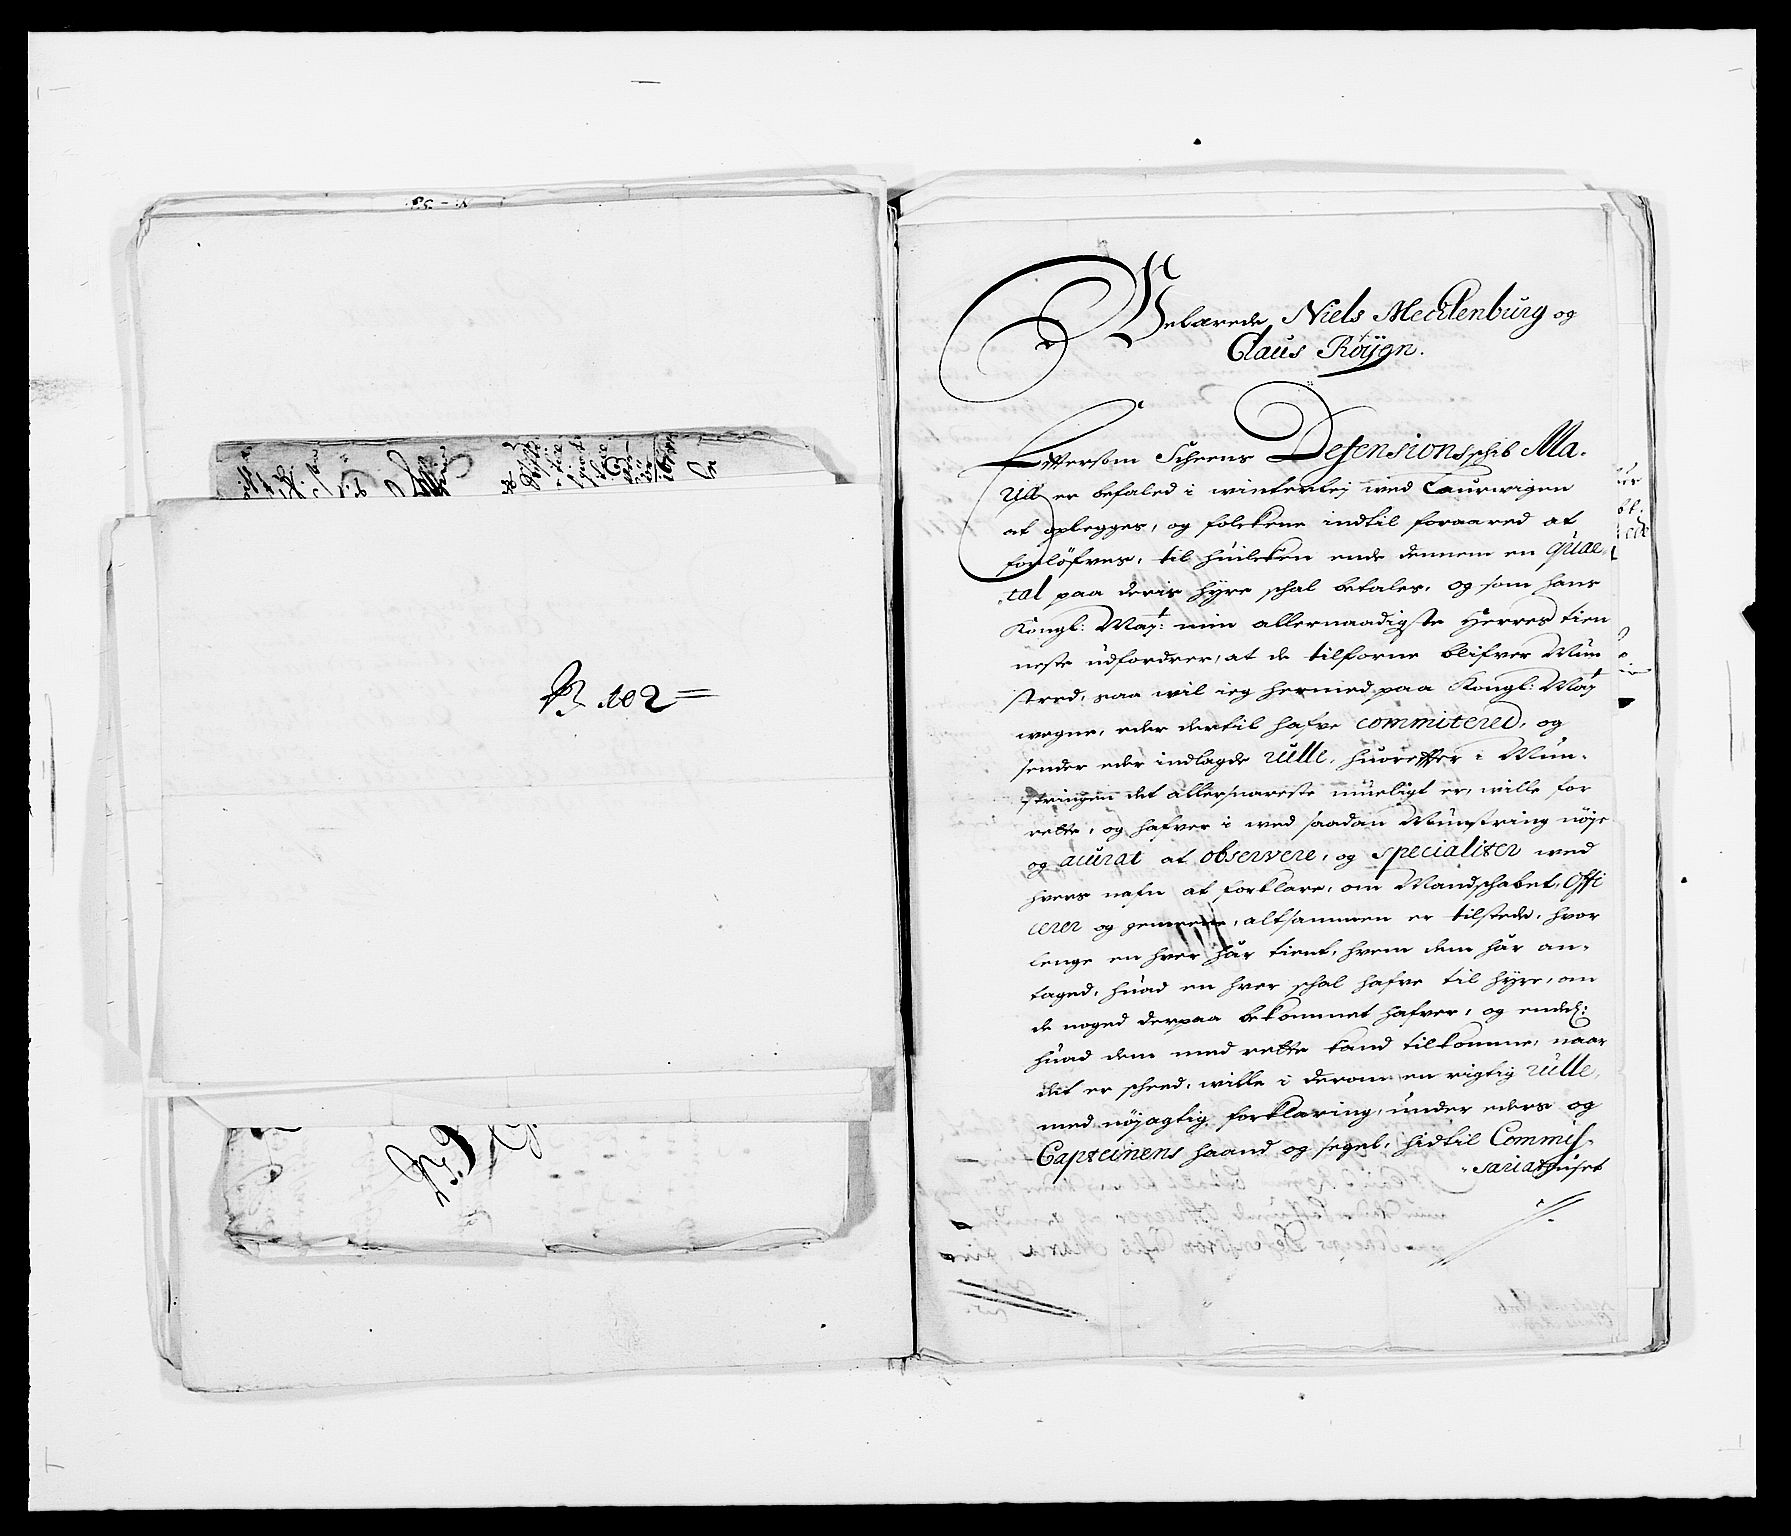 N. 102 =
Velærede Niels Mecklenburg og
Claus Röÿgn.
Eftersom Scheens Defensionsschib Ma-
ria er befaled i winterlej wed Laurwigen
at oplegges, og folckene indtil foraared at
forlöfves, til huilcken ende dennem en Quar-
tal paa deris hyre schal betales, og som hans
Kongl: Maÿt: min allernaadigste Herres tien
neste udfordrer, at de tilforne blifver Mün
stred, saa wil ieg hermed paa Kongl: Maÿt
wegne, eder dertil hafve committered, og
sender eder indlagde rulle, huorefter i Mün-
stringen det allersnareste mueligt er, wille for
rette, og hafver i wed saadan Münstring nöje
og acurat at observere, og specialiter wed
hvers nafn at forklare, om Mandschabet, Offi
cerer og gemeene, altsammen er tilstede, hvor
lenge en hver hår tient, hvem dem hår an-
taged, huad en hver schal hafve til hyre, om
de noged derpaa bekommet hafver, og endel:
huad dem med rette kand tilkomme, naar
det er scheed, wille i derom en rigtig rulle,
med nöjagtig forklaring, under eders og
Capteinens haand og segel, hidtil Commis-
sariathuset